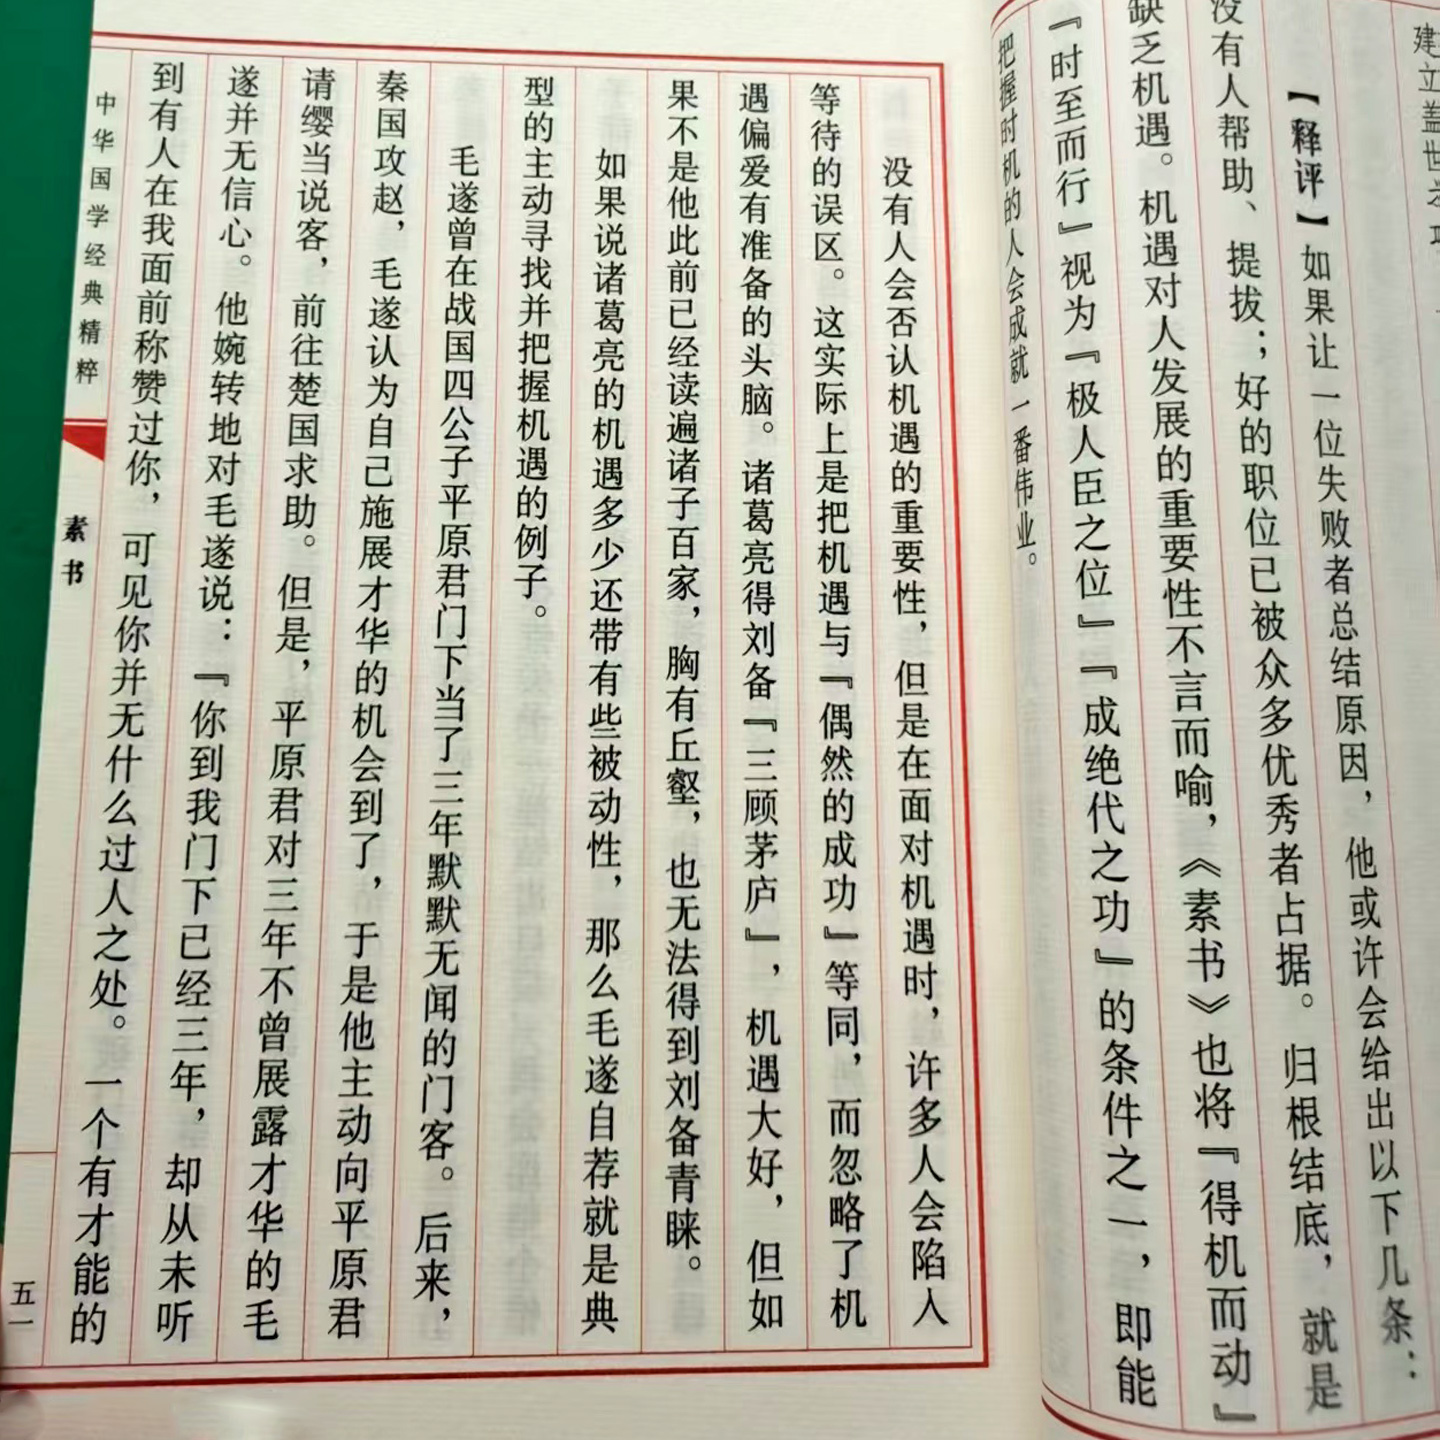 建立盖世之功
【释评】如果让一位失败者总结原因，他或许会给出以下几条：
没有人帮助、提拔；好的职位已被众多优秀者占据。归根结底，就是
缺乏机遇。机遇对人发展的重要性不言而喻，《素书》也将『得机而动』
『时至而行』视为『极人臣之位』『成绝代之功』的条件之一，即能
把握时机的人会成就一番伟业。
没有人会否认机遇的重要性，但是在面对机遇时，许多人会陷入
等待的误区。这实际上是把机遇与『偶然的成功』等同，而忽略了机
遇偏爱有准备的头脑。诸葛亮得刘备『三顾茅庐』，机遇大好，但如
果不是他此前已经读遍诸子百家，胸有丘壑，也无法得到刘备青睐。
如果说诸葛亮的机遇多少还带有些被动性，那么毛遂自荐就是典
型的主动寻找并把握机遇的例子。
毛遂曾在战国四公子平原君门下当了三年默默无闻的门客。后来，
秦国攻赵，毛遂认为自己施展才华的机会到了，于是他主动向平原君
请缨当说客，前往楚国求助。但是，平原君对三年不曾展露才华的毛
遂并无信心。他婉转地对毛遂说：『你到我门下已经三年，却从未听
到有人在我面前称赞过你，可见你并无什么过人之处。一个有才能的
中华国学经典精粹
素书
五一